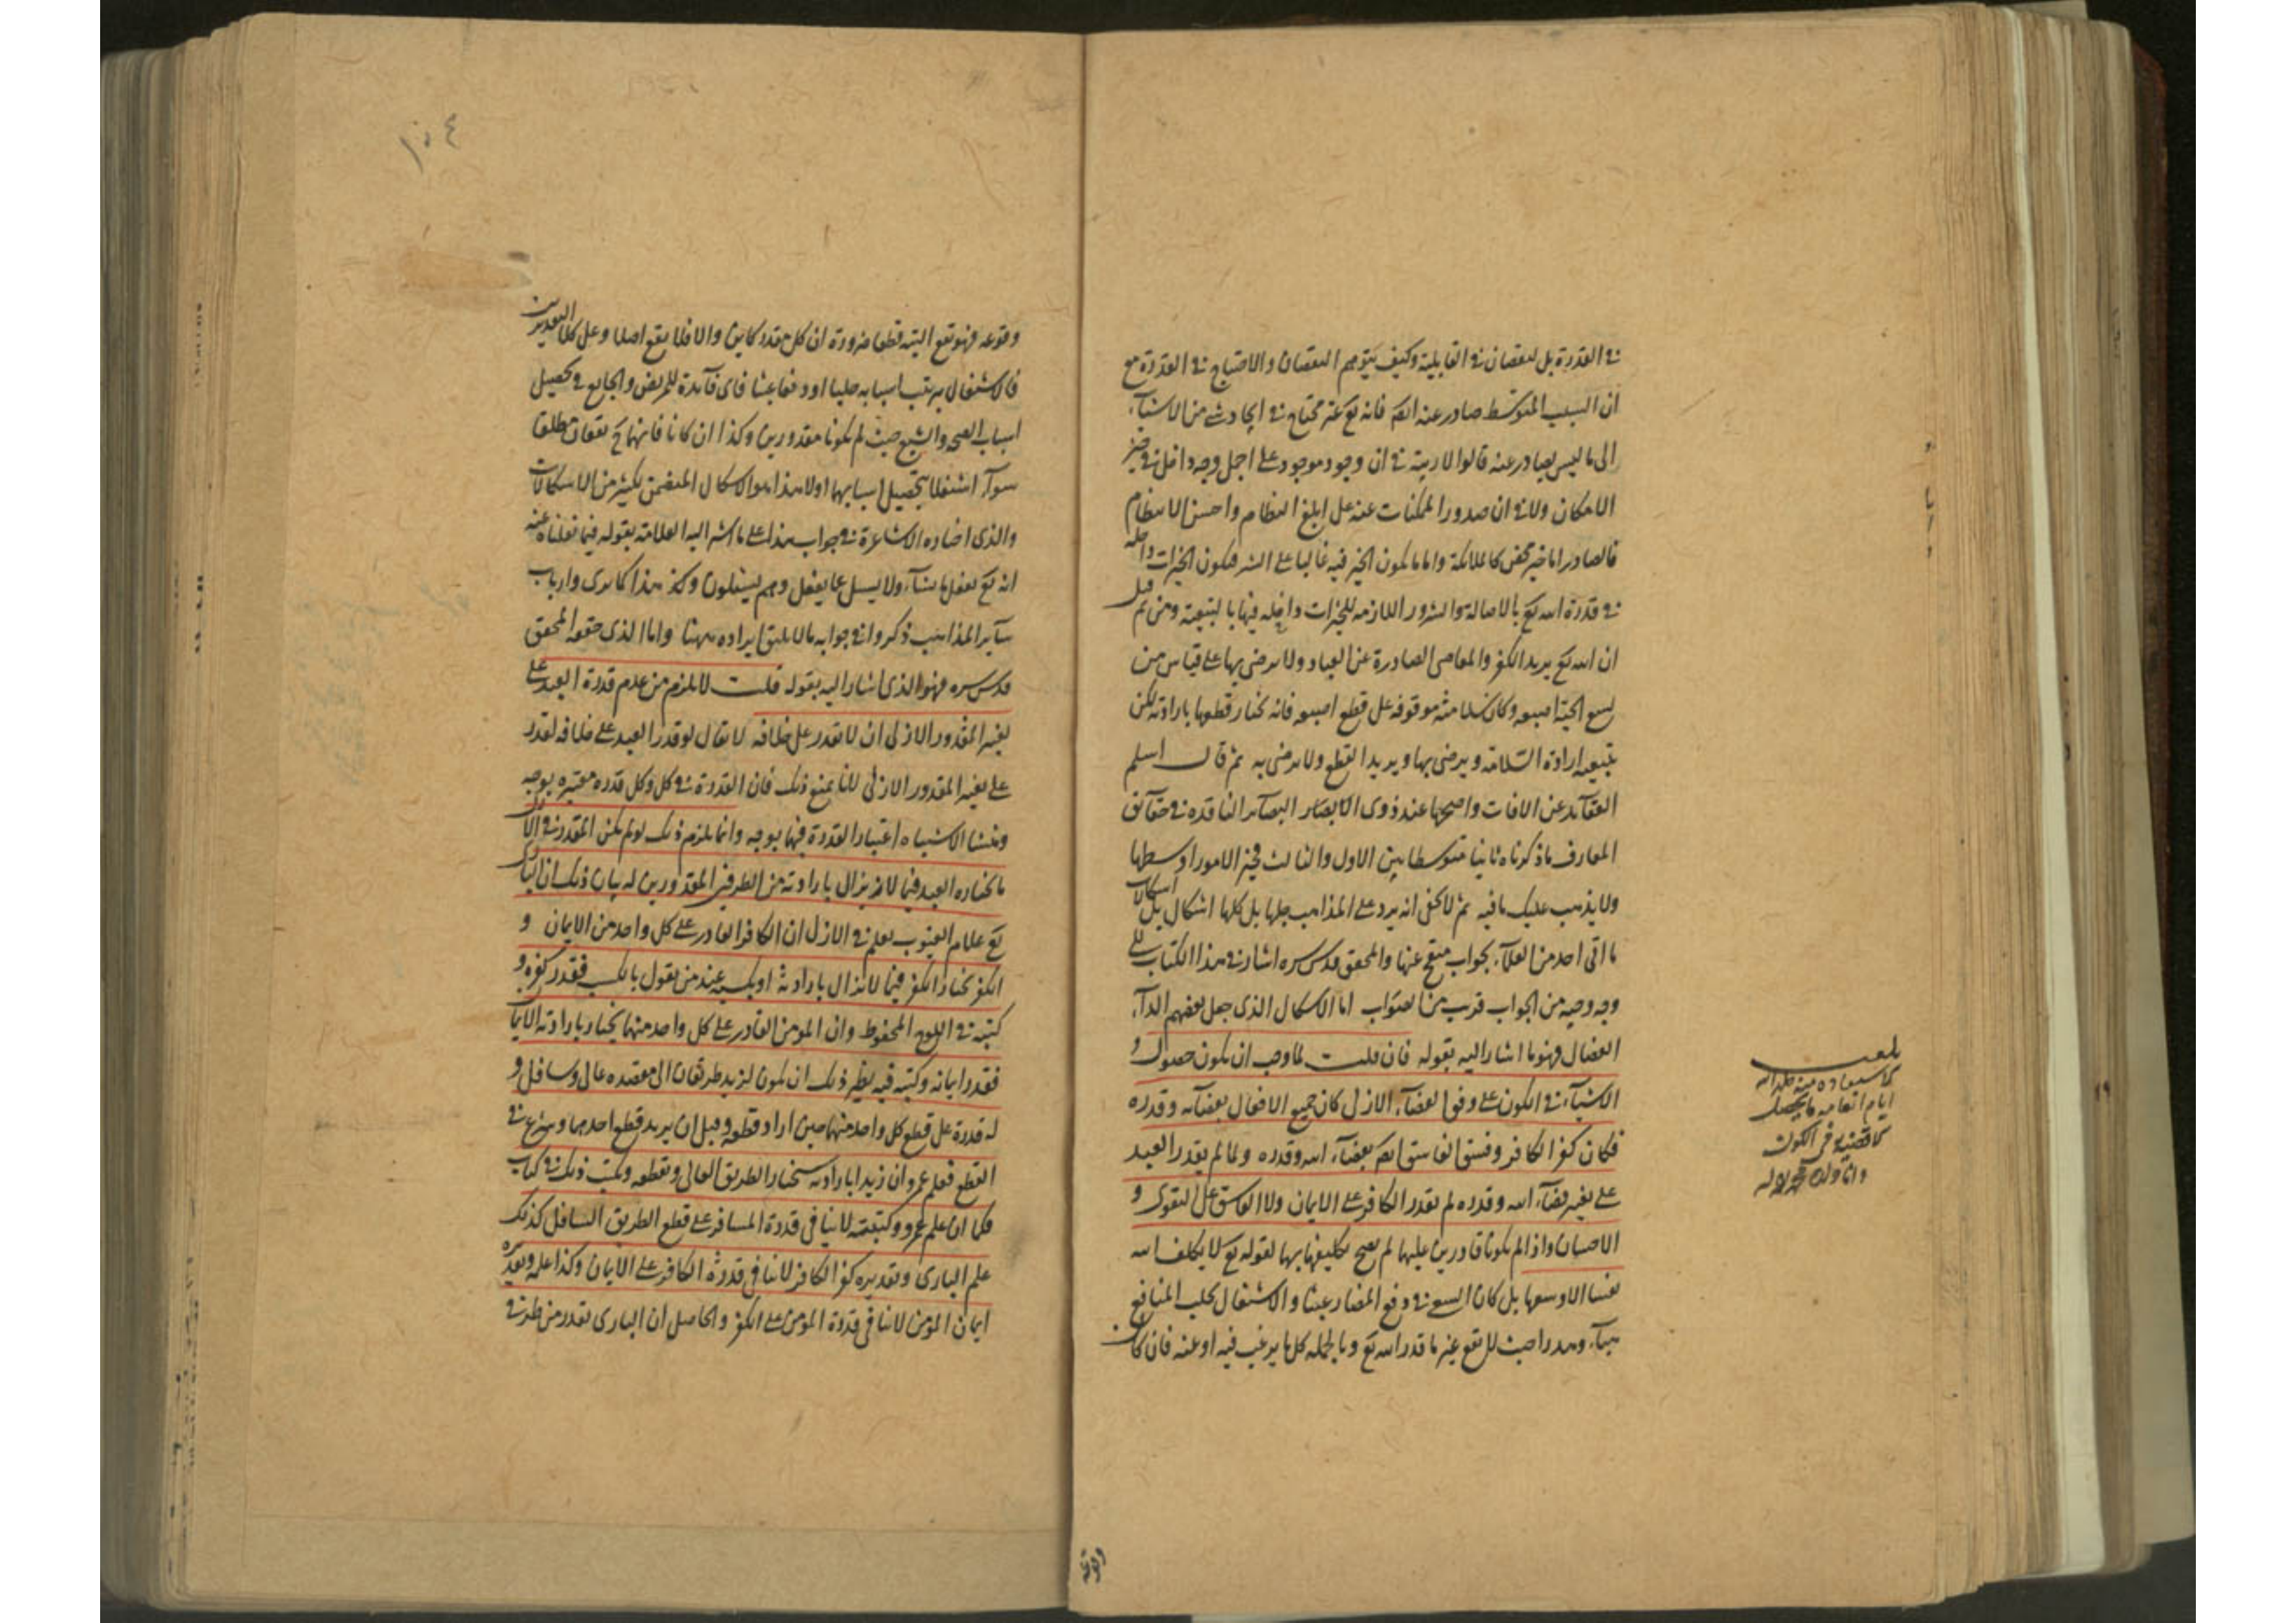 في القدرة بل لنقصان في القابلية وكيف يتوهم النقصان والاحتياج في القدرة مع
ان السبب المتوسط صادر عنه ايضا فانه تع غير محتاج في ايجاد شئ من الاشياء
الى ما ليس بصادر عنه قالوا لا ريبة في ان وجود موجود على اجل وجه داخل في حيز
الامكان ولا في ان صدور الممكنات عنه على ابلغ النظام واحسن الانتظام
فالصادر اما خير محض كالملائكة واما ما يكون الخير فيه غالبا على الشر فيكون الخيرات داخلة
في قدرة الله تع بالاصالة والشرور اللازمه للخيرات داخله فيها بالتبعية ومن ثم قيل
ان الله تع يريد الكفر والمعاصى الصادرة عن العباد ولا يرضى بها على قياس من
لسع الحية اصبعه وكان سلامته موقوفه على قطع اصبعه فانه يختار قطعها بارادته لكن
بتبعية ارادة السلامة ويرضى بها ويريد القطع ولا يرضى به ثم قال اسلم
العقائد عن الافات واصحها عند ذوى الابصار البصائر النافذه في حقائق
المعارف ما ذكرناه ثانيا متوسطا بين الاول والثالث فخير الامور اوسطها
ولا يذهب عليك ما فيه ثم لا يخفى انه يرد على المذاهب جلها بل كلها اشكال بل اشكالات
ما اتى احد من العلماء بجواب منقح عنها والمحقق قدس سره اشار في هذا الكتاب الى
وجه وجيه من الجواب قريب من الصواب اما الاشكال الذى جعل بعضهم الداء
العضال فهو ما اشار اليه بقوله فان قلت لما وجب ان يكون حصول
الاشياء في الكون على وفق القضاء الازلى كان جميع الافعال بقضائه وقدره
فكان كفر الكافر وفسق الفاسق ايضا بقضاء الله وقدره ولما لم يقدر العبد
على تغيير قضاء الله وقدره لم يقدر الكافر على الايمان ولا الفاسق على التقوى و
الاحسان واذا لم يكونا قادرين عليهما لم يصح تكليفهما بها لقوله تع لا يكلف الله
نفسا الا وسعها بل كان السعى في دفع المضار عبثا والاشتغال بجلب المنافع
هباء وهدرا حيث لا يقع غير ما قدر الله تع وبالجملة كل ما يرغب فيه او عنه فان كان
وقوعه
وقوعه فهو يقع البتة قطعا ضرورة ان كل مقدر كاين والا فلا يقع اصلا وعلى كلا التقديرين
فالاشتغال بترتيب اسبابه جلبا او دفعا عبثا فاى فائدة للمريض والجايع في تحصيل
اسباب الصحة والشبع حيث لم يكونا مقدورين وكذا ان كانا فانهما ح يقعان مطلقا
سواء اشتغلا بتحصيل اسبابهما اولا هذا هو الاشكال المتضمن لكثير من الاشكالات
والذى اختاره الاشاعرة في جواب هذا على ما اشار اليه العلامة بقوله فيما نقلناه عنه
انه تع يفعل ما يشاء ولا يسئل عما يفعل وهم يسئلون وكذ هذا كما ترى وارباب
سائر المذاهب ذكروا في جوابه ما لا يليق ايراده ههنا واما الذى حققه المحقق
قدس سره فهو الذى اشار اليه بقوله قلت لا يلزم من عدم قدرة العبد على
تغيير المقدور الازلى ان لا يقدر على خلافه لا يقال لو قدر العبد على خلافه لقدر
على تغيير المقدور الازلى لانا نمنع ذلك فان القدرة في كل وكل قدره معتبره بوجه
ومنشا الاشتباه اعتبار القدرة فيهما بوجه وانما يلزم ذلك لو لم يكن المقدر في الازل
ما يختاره العبد فيما لا يزال بارادته من الطرفين المقدورين له بيان ذلك ان البارى
تع علام الغيوب يعلم في الازل ان الكافر القادر على كل واحد من الايمان و
الكفر يختار الكفر فيما لا يزال بارادته او بكسبه عند من يقول بالكسب فقدر كفره و
كتبه في اللوح المحفوظ وان المومن القادر على كل واحد منهما يختار بارادته الايمان
فقدر ايمانه وكتبه فيه نظير ذلك ان يكون لزيد طريقان الى مقصده عال وسافل و
له قدرة على قطع كل واحد منهما حين اراد قطعه وقبل ان يريد قطع احدهما وشرع في
القطع فعلم عمرو ان زيدا بارادته سيختار الطريق العالى ويقطعه وكتب ذلك في كتاب
فكما ان علم عمرو وكتبته لا ينافى قدرة المسافر على قطع الطريق السافل كذلك
علم البارى وتقديره كفر الكافر لا ينافى قدرة الكافر على الايمان وكذا علمه وتقديره
ايمان المؤمن لا ينافى قدرة المؤمن على الكفر والحاصل ان البارى يقدر من طرفى